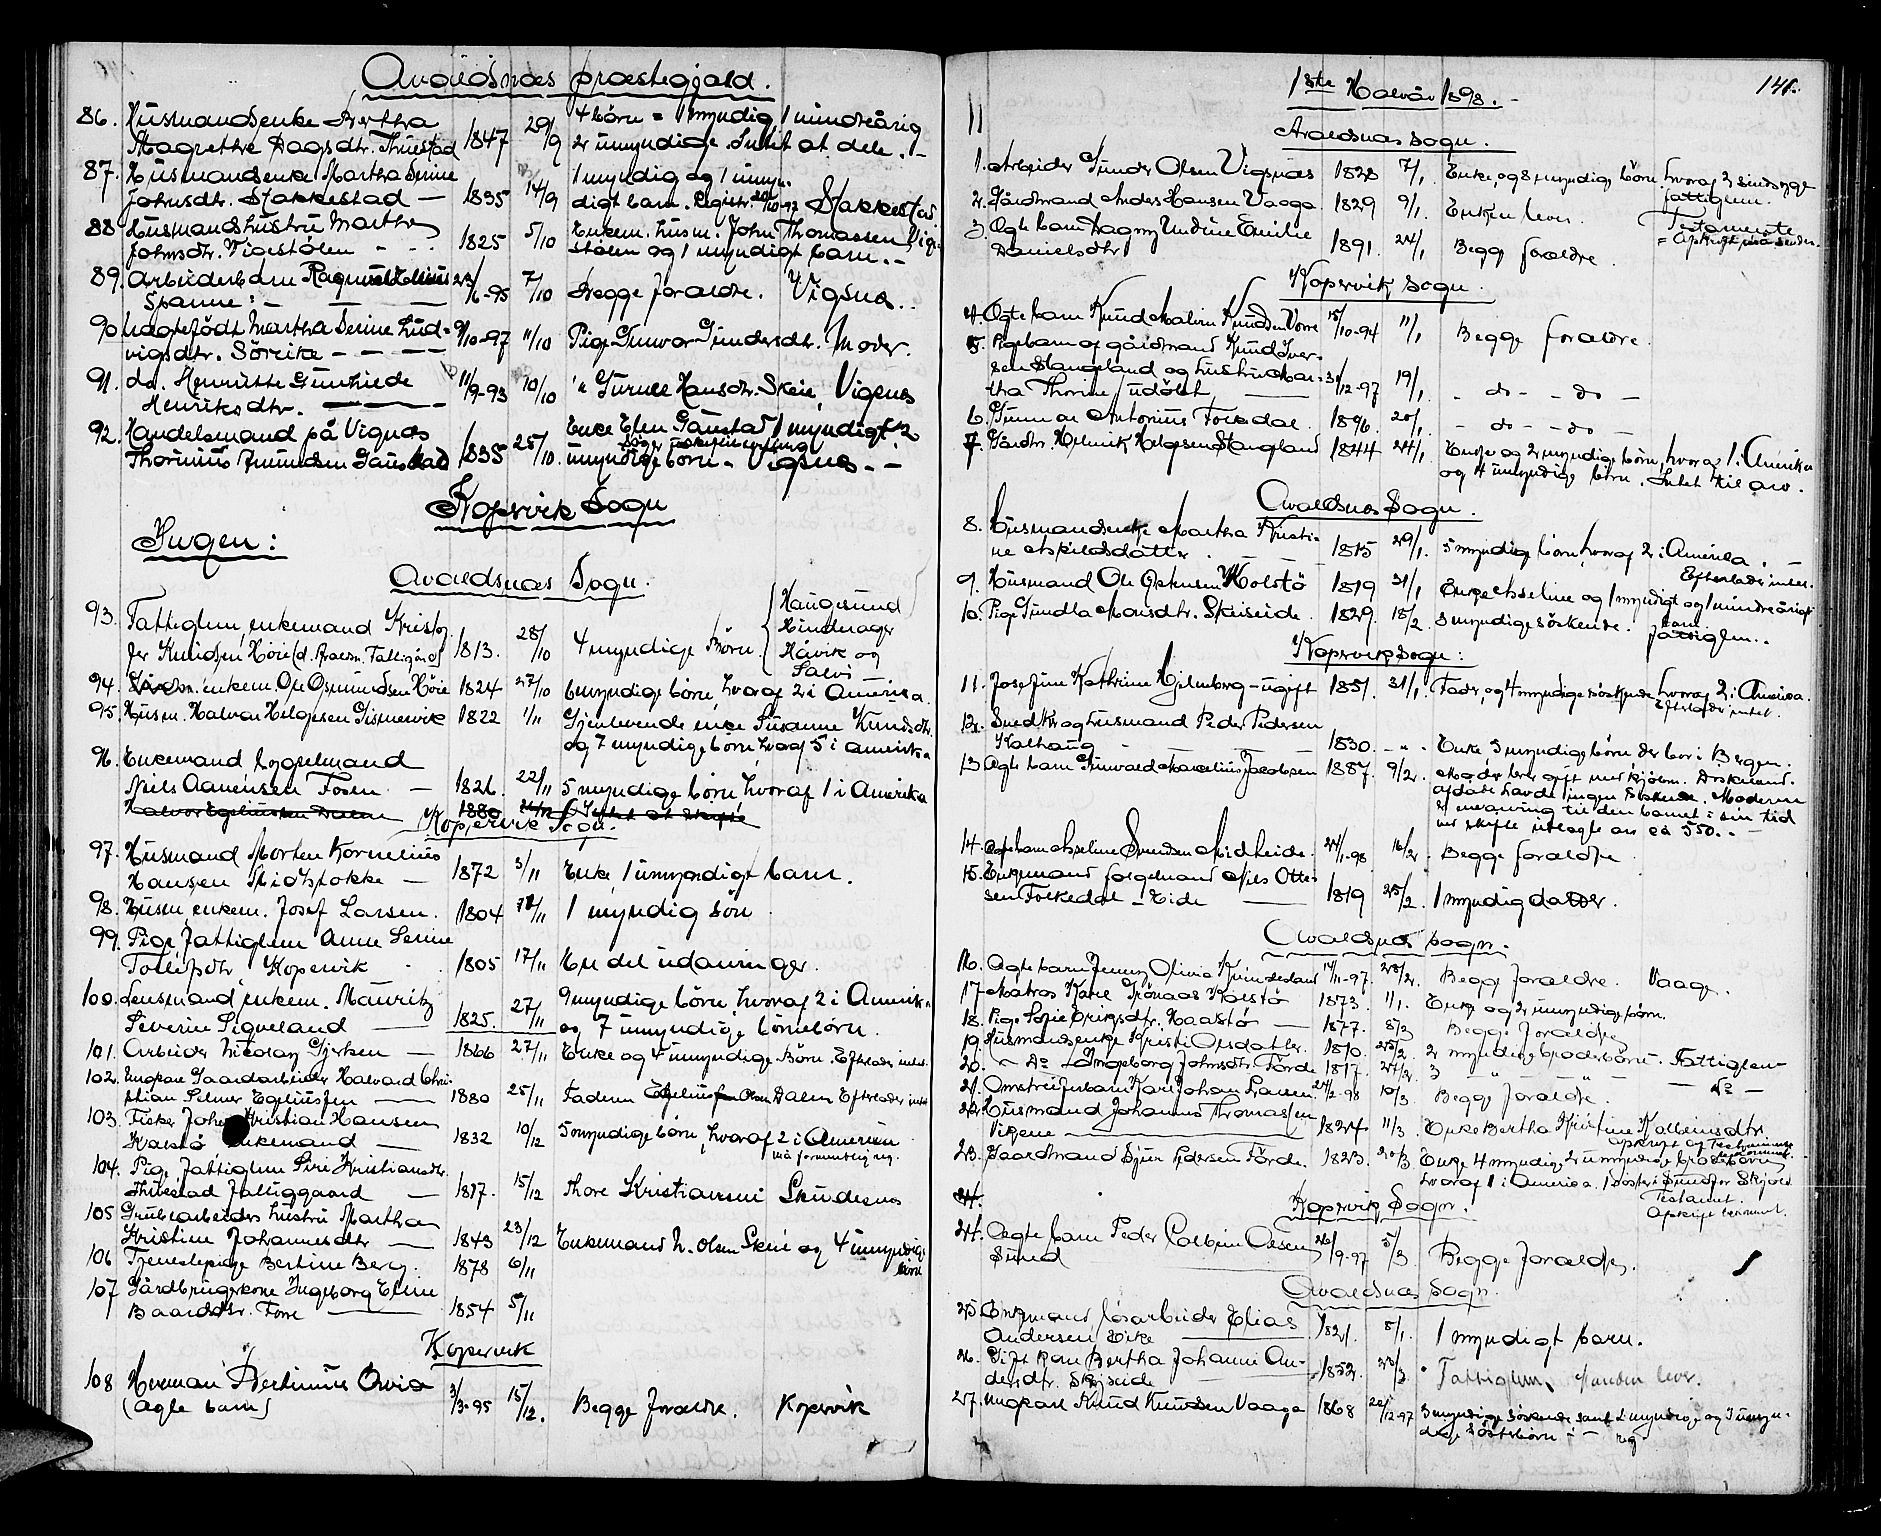 Avaldsnæs præstegjeld.
86. Husmandsenke Bertha
Magrethe Dagsdtr. Thuestad 1847 29/9 4 børn = 1 myndig 1 mindreårig
2 umyndige. Intet at dele. -
87. Husmandsenke Martha Serine
Johnsdtr. Stakkestad — 1835 14/9 1 myndig og 1 umyn-
digt barn. Registr. 20/10-97 Stakkestad
88 Husmandshustru Martha
Johnsdtr. Vigestølen - - - 1825 5/10 Enkem. husm. John Thomassen Vige-
stølen og 1 myndigt barn. -
89. Arbeiderbarn Ragnvald
Spanne: — — — 23/6-95 7/10 Begge forældre. Vigsnæs.
90 Uægtefødt Martha Serine Lud-
vigsdtr. Sørvike - - - - 9/10-97 11/10 Pige Gunvor Gundersdtr. Moder.
91. do. Henriette
Henriksdtr. — — — 11/9-93 10/10 Hansdtr. Skeie, Vigsnæs
92. Handelsmand på Vigsnæs
Thormius Amundsen Gaustad 1835 25/10. Enke Elen Gaustad 1 myndigt 2
umyndige børn. - Vigsnæs - -
Kopervik Sogn
Ingen:
Avaldsnæs Sogn.
93. Fattiglem, enkemand Kristof-
fer Knudsen Høie (d. Avaldsn. Fattiggård) 1813. 28/10 4 myndige Børn. { Haugesund
Hinderager
Håvik og
Salvø
94. enkem. Ole Osmundsen Høie 1824 27/10 6 myndige børn, hvoraf 2 i Amerika.
95. Husm. Halvor Helgesen Gismervik 1822 1/11 Gjenlevende enke Susanne Knudsdtr.
og 7 myndige børn hvoraf 5 i Amerika
96. Enkemand bygselmand
Niels Aanensen Fosen — 1826. 22/11 5 myndige børn hvoraf 1 i Amerika
Halvor Egeliussen Dalen 1880 Intet at skifte
Kopervik Sogn.
97. Husmand Morten Kornelius
Hansen Midtstokke — 1872 3/11 Enke, 1 umyndigt barn.
98. Husm. enkem. Josef Larsen. 1804 11/11 1 myndig søn
99. Pige fattiglem Anne Serine
Tollefsdtr Kopervik - . 1805 17/11 En del udarvinger.
100. Lensmand, enkem. Mauritz
Severin Siqveland — 1825. 27/11 9 myndige børn hvoraf 2 i Amerika
og 7 umyndige børnebørn.
101. Arbeider Nicolay Gjerken — 1866 27/11 Enke og 4 umyndige Børn. Efterlader intet.
102. Ungkarl Gaardarbeider Halvard Chri-
stian Selmer Egeliussen — 1880 25/11 Faderen Egelius Olsen Dalen Efterlader intet
103. Fisker Johan Kristian Hansen
Kalstø Enkemand — 1832 10/12 5 myndige børn, hvoraf 2 i Amerika
må formentlig reg.
104. Pige fattiglem Siri Kristiansdtr.
Thuestad Fattiggaard — 1817. 15/12 Thore Kristiansen Skudesnæs
105 Grubearbeiders hustru Martha
Kristine Johannesdtr — 1843 23/12 Enkemand N. Olsen Skeie og 4 umyndige
børn
106 Tjenestepige Bertine Berg. 1878 6/11
107 Gårdbrugerkone Ingeborg Eline
Baardsdtr. Førre — 1854 5/11
Kopervik
108 Herman Bertinius
(ægte barn) 3/3-95 15/12. Begge forældre. Kopervik
141.
1ste Halvår 1898. -
Avaldsnæs Sogn.
1. Arbeider Gunder Olsen Vigsnæs 1828 7/1 Enke, og 8 myndige børn, hvoraf 2 sindsyge
fattiglem.
2. Gårdmand Anders Hansen Vaage 1829 9/1 Enken lever.
Testamente
= Afskrift må sendes.
3. Ægte barn Dagny Undine Emilie
Danielsdtr 1891. 24/1 Begge forældre.
Kopervik Sogn.
4. Ægte barn Knud Malvin Knudsen Vorre 15/10-94 11/1 Begge forældre
5. Pigebarn af gårdmand Knud Iver-
sen Stangeland og hustru Mar-
tha Thorine, udøbt — 31/12-97 19/1 - do - - do -
6. Gunnar Antonius Folkedal. 1896. 20/1 - do - - do -
7. Gårdbr. Helmik Helgesen Stangeland 1844 24/1 Enke og 2 myndige børn, hvoraf 1 i Amerika
og 4 umyndige børn. Intet til arv.
Avaldsnæs Sogn.
8. Husmandsenke Martha Kristi-
ne Askildsdatter . — 1815 29/1. 5 myndige børn, hvoraf 2 i Amerika. -
Efterlader intet.
9. Husmand Ole Kolstø 1819 31/1 Enke Asseline og 1 myndigt og 1 mindreårigt
barn
10. Pige Gundla Monsdtr. Skeiseide. 1829. 18/2. 3 myndige søskende. fattiglem.
Kopervik Sogn:
11. Josefine Kathrine Hjelmberg - ugift 1851. 31/1. Fader, og 4 myndige søskende hvoraf 2 i Amerika.
Efterlader intet.
12. Snedker og husmand Peder Pedersen
Kalhaug - — 1830. - " - Enke 3 myndige børn, der bor i Bergen.
13 Ægte barn Gunvald Marcelius Jacobsen 1887. 9/2. Moder lever gift med kjøbm.
afdøde havde ingen søskende. Moderen
er enearving til den barnet i sin tid
ved skifte utlagte arv ca 550. -
14. Pigebarn Asseline Svendsen Midtheide. 24/1-98 16/2. Begge forældre
15. Enkemand forgelmand Nils Otte-
sen Folkedal - Eide — 1819 25/2. 1 myndig datter.
Avaldsnæs Sogn.
16. Ægte barn Jenny Olivia 14/11-97. 28/2. Begge forældre. Vaage.
17 Matros Karl Kalstø 1873. 1/1. Enke og 2 umyndige børn.
18. Pige Sofie Eriksdtr. Haastø — 1877. 8/3 Begge forældre
19. Husmandsenke Kristi Olsdatter. 1810. 25/2. 2 myndige broderbørn. Fattiglem
20. - Do - Ingeborg Johnsdtr. Førde 1817. 27/2. 3 - " - " — do —
21. Omstreiferbarn Karl Johan Larsen 24/2-98 10/3. Begge forældre.
22. Husmand Johannes Thomassen
Vigene — 1824 11/3. Enke Bertha Kristine
23. Gaardmand Sjur Pedersen Førde. 1823. 20/3 Enke 4 myndige 2 umyndige
hvoraf 1 i Amerika. 1 datter i Skjold
Testament.
Afskrift kommet.
24.
Kopervik Sogn.
24. Ægte barn Peder Colbein Olsen
Sund 26/9-97 5/3 Begge forældre.
Avaldsnæs Sogn.
25. Enkemand, løsarbeider Elias
Andersen Eike — 1821. 8/1. 1 myndigt barn.
26. Gift kone Bertha Johanne An-
dersdtr. Skeiseide — 1852. 23/3 Fattiglem. Manden lever.
27. Ungkarl Knud Knudsen Vaage 1868 22/12-97 3 myndige søskende samt 2 myndige og 7 umyn-
dige søsterbørn - - reg.